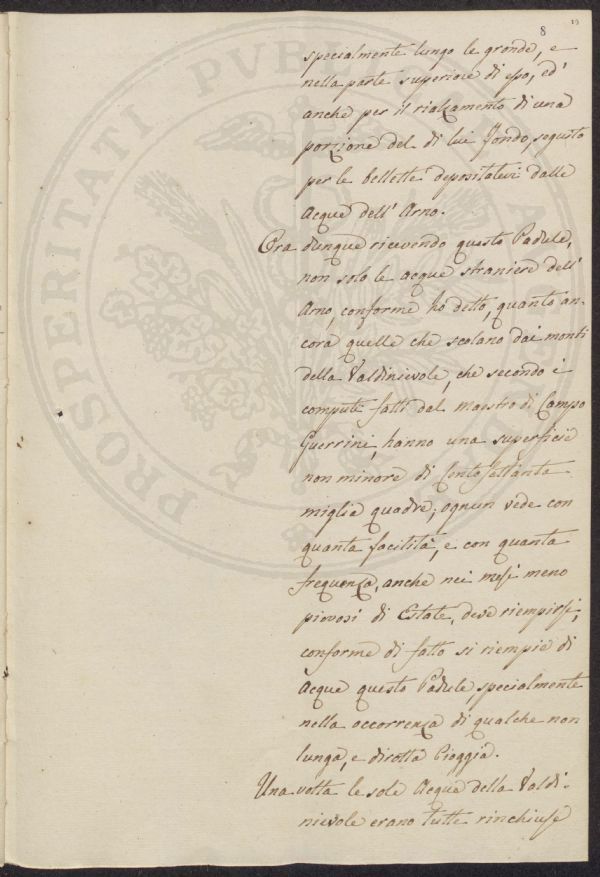 8
specialmente lungo le gronde, e
nella parte superiore di esso, ed'
anche per il rialzamento di una
porzione del di lui fondo, seguito
per le bellette depositatevi dalle
acque dell' Arno.
Ora dunque ricevendo questo Padule,
non solo le acque straniere dell'
Arno, conforme ho detto, quanto an-
cora quelle che scolano dai monti
della Valdinievole, che secondo i
computi fatti dal maestro di Campo
Guerrini, hanno una superficie
non minore di Cento settanta
miglia quadre; ognun vede con
quanta facilità, e con quanta
frequenza, anche nei mesi meno
piovosi di Estate, deve riempirsi,
conforme di fatto si riempie di
Acque questo Padule, specialmente
nella occorrenza di qualche non
lunga, e dirotta Pioggia.
Una volta le sole Acque della Valdi-
nievole erano tutte rinchiuse
PROSPERITATI PVBLICAE